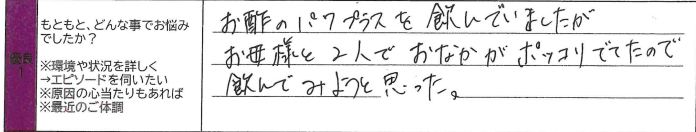 優良
1
もともと、どんな事でお悩み
でしたか？
※環境や状況を詳しく
→エピソードを伺いたい
※原因の心当たりもあれば
※最近のご体調
お酢のパワプラスを飲んでいましたが
お母様と2人でおなかがポッコリでてたので
飲んでみようと思った。